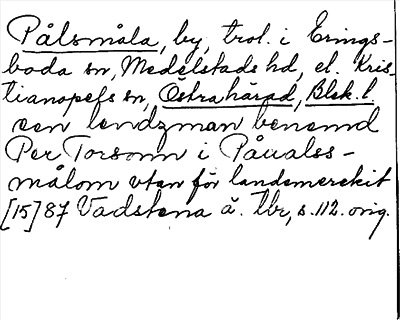 Pålsmåla, by, trol. i Erings-
boda sn, Medelstads hd, el. Kris-
tianopels sn, Östra härad, Blek. l.
een lendzman benemd
Per Torsonn i Påualss-
målom vtan för landamerckit
[15]87 Vadstena ä. tbr, s. 112. orig.